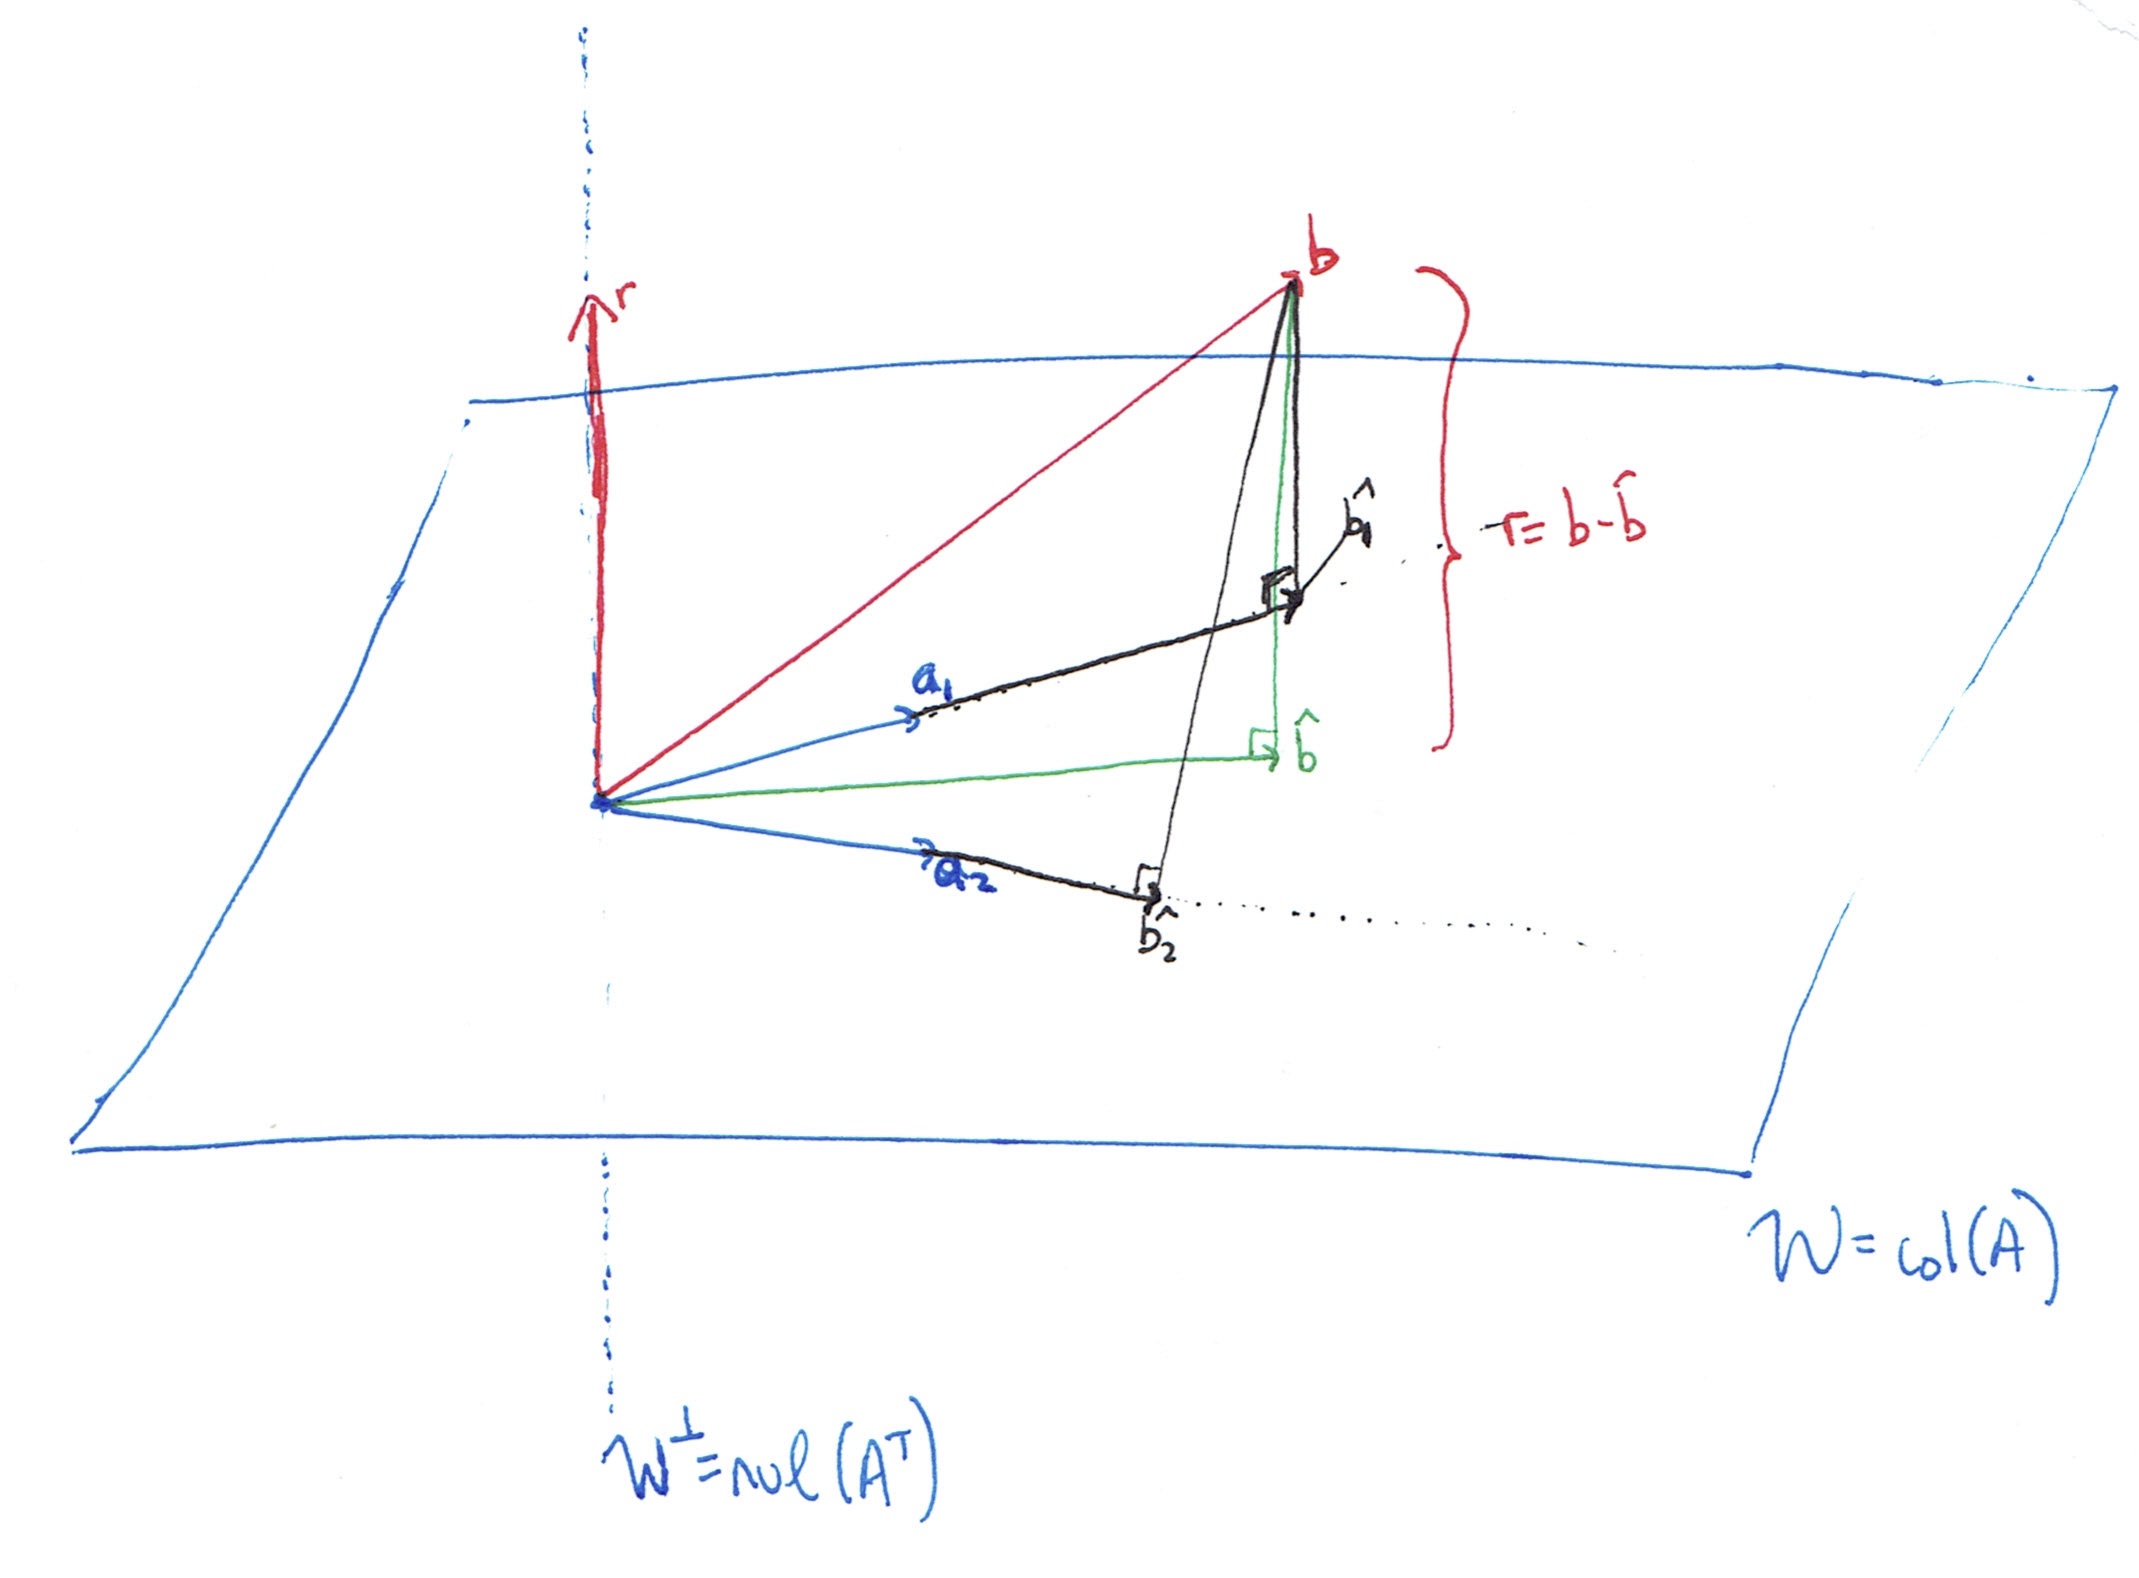 b
r
b̂₁
r = b - b̂
a₁
b̂
a₂
b̂₂
W = col(A)
W⊥ = nul(Aᵀ)